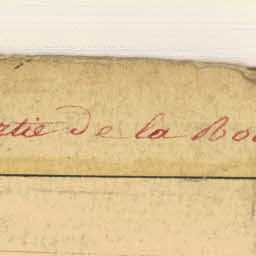 rtie de la Ro